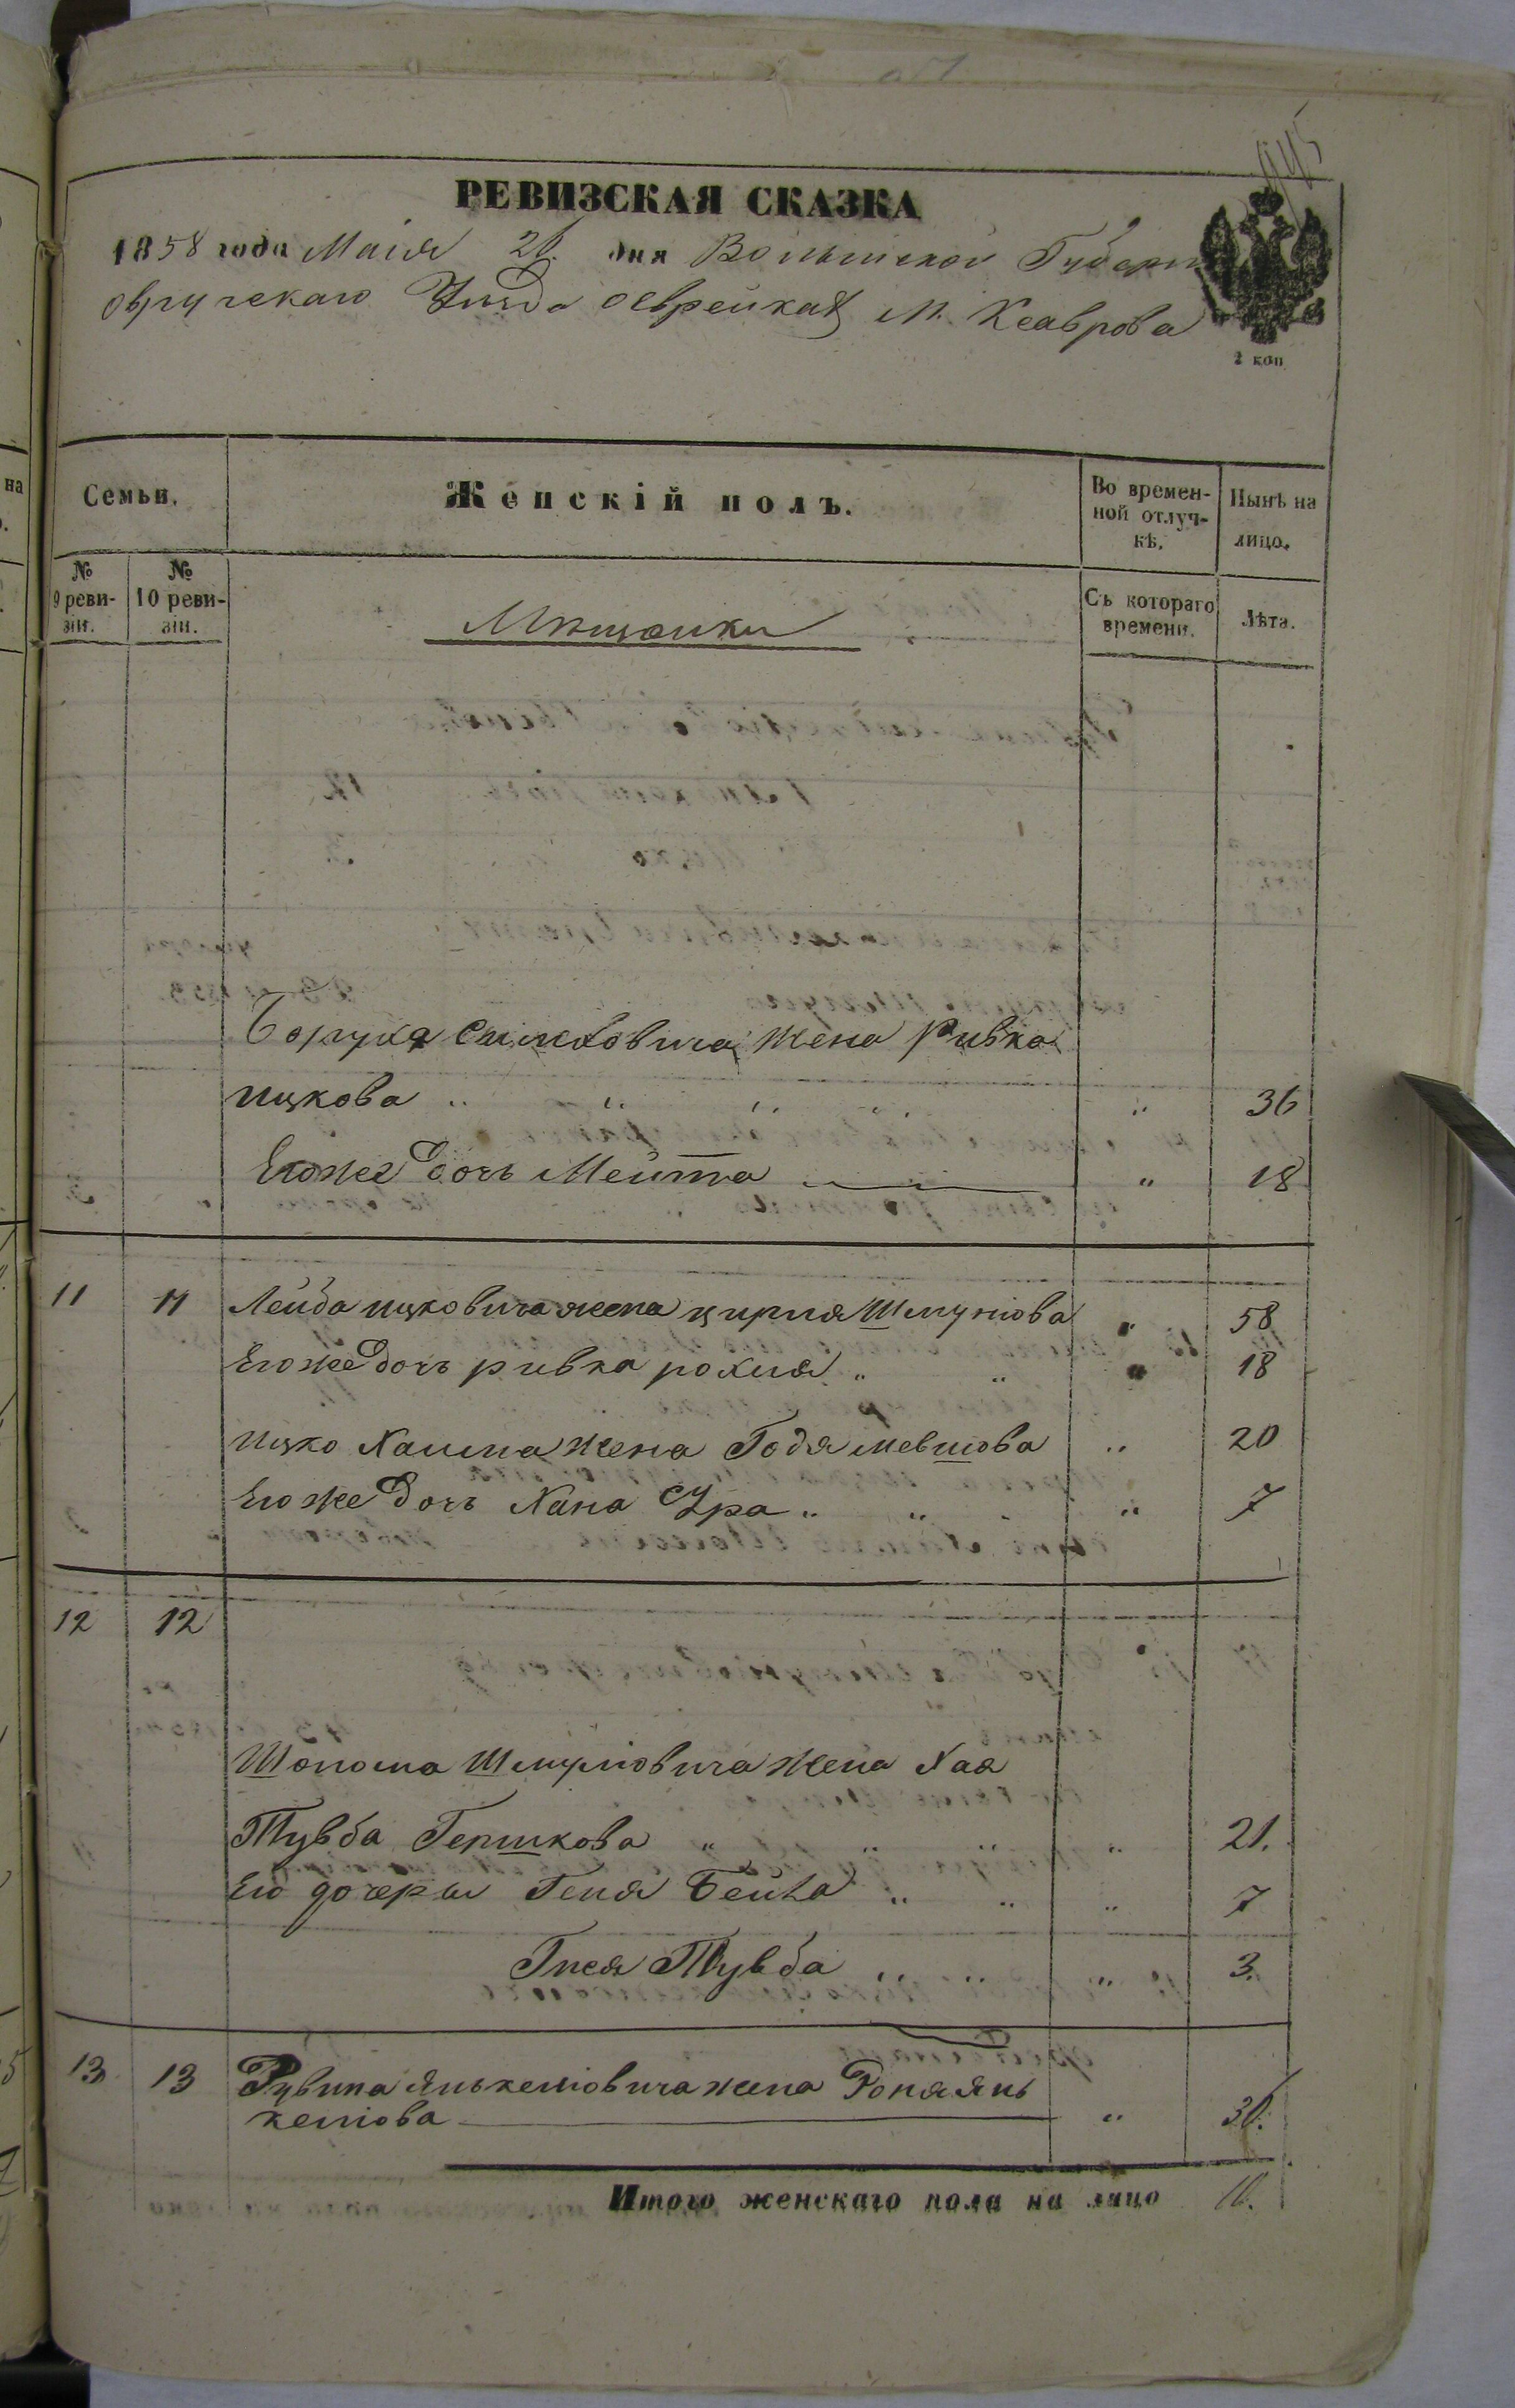 РЕВИЗСКАЯ СКАЗКА
1858 года Маія 2 дня Волынской Губерн
овручскаго Уѣзда оеврейкахъ М. Ксаврова
2 коп
Семьи.
Женскій полъ.
Во времен-
ной отлуч-
кѣ.
Нынѣ на
лицо.
№
9 реви-
зіи.
№
10 реви-
зіи.
Мѣщанки
Съ котораго
времени.
Лѣта.
Боруха жена Ривка
ицкова " " " " " 36
Егоже дочь Мейта " 18
11 11 Лейба ицковича жена цирля Шмулiова " 58
Егоже дочь ривка рохля " " " 18
ицко Хаима жена Годя мевшова " 20
Егоже дочь Хана Сура " " " 7
12 12
Шлиома Шмулiовича жена Хая
Тувба Гершкова " " " " 21.
Его дочеры Геня Бейла " " " 7
Тувба " " " " 3.
13 13 Рувина Янкелiовича жена Роня Янь
келiова " 36.
Итого женскаго пола на лицо 10.